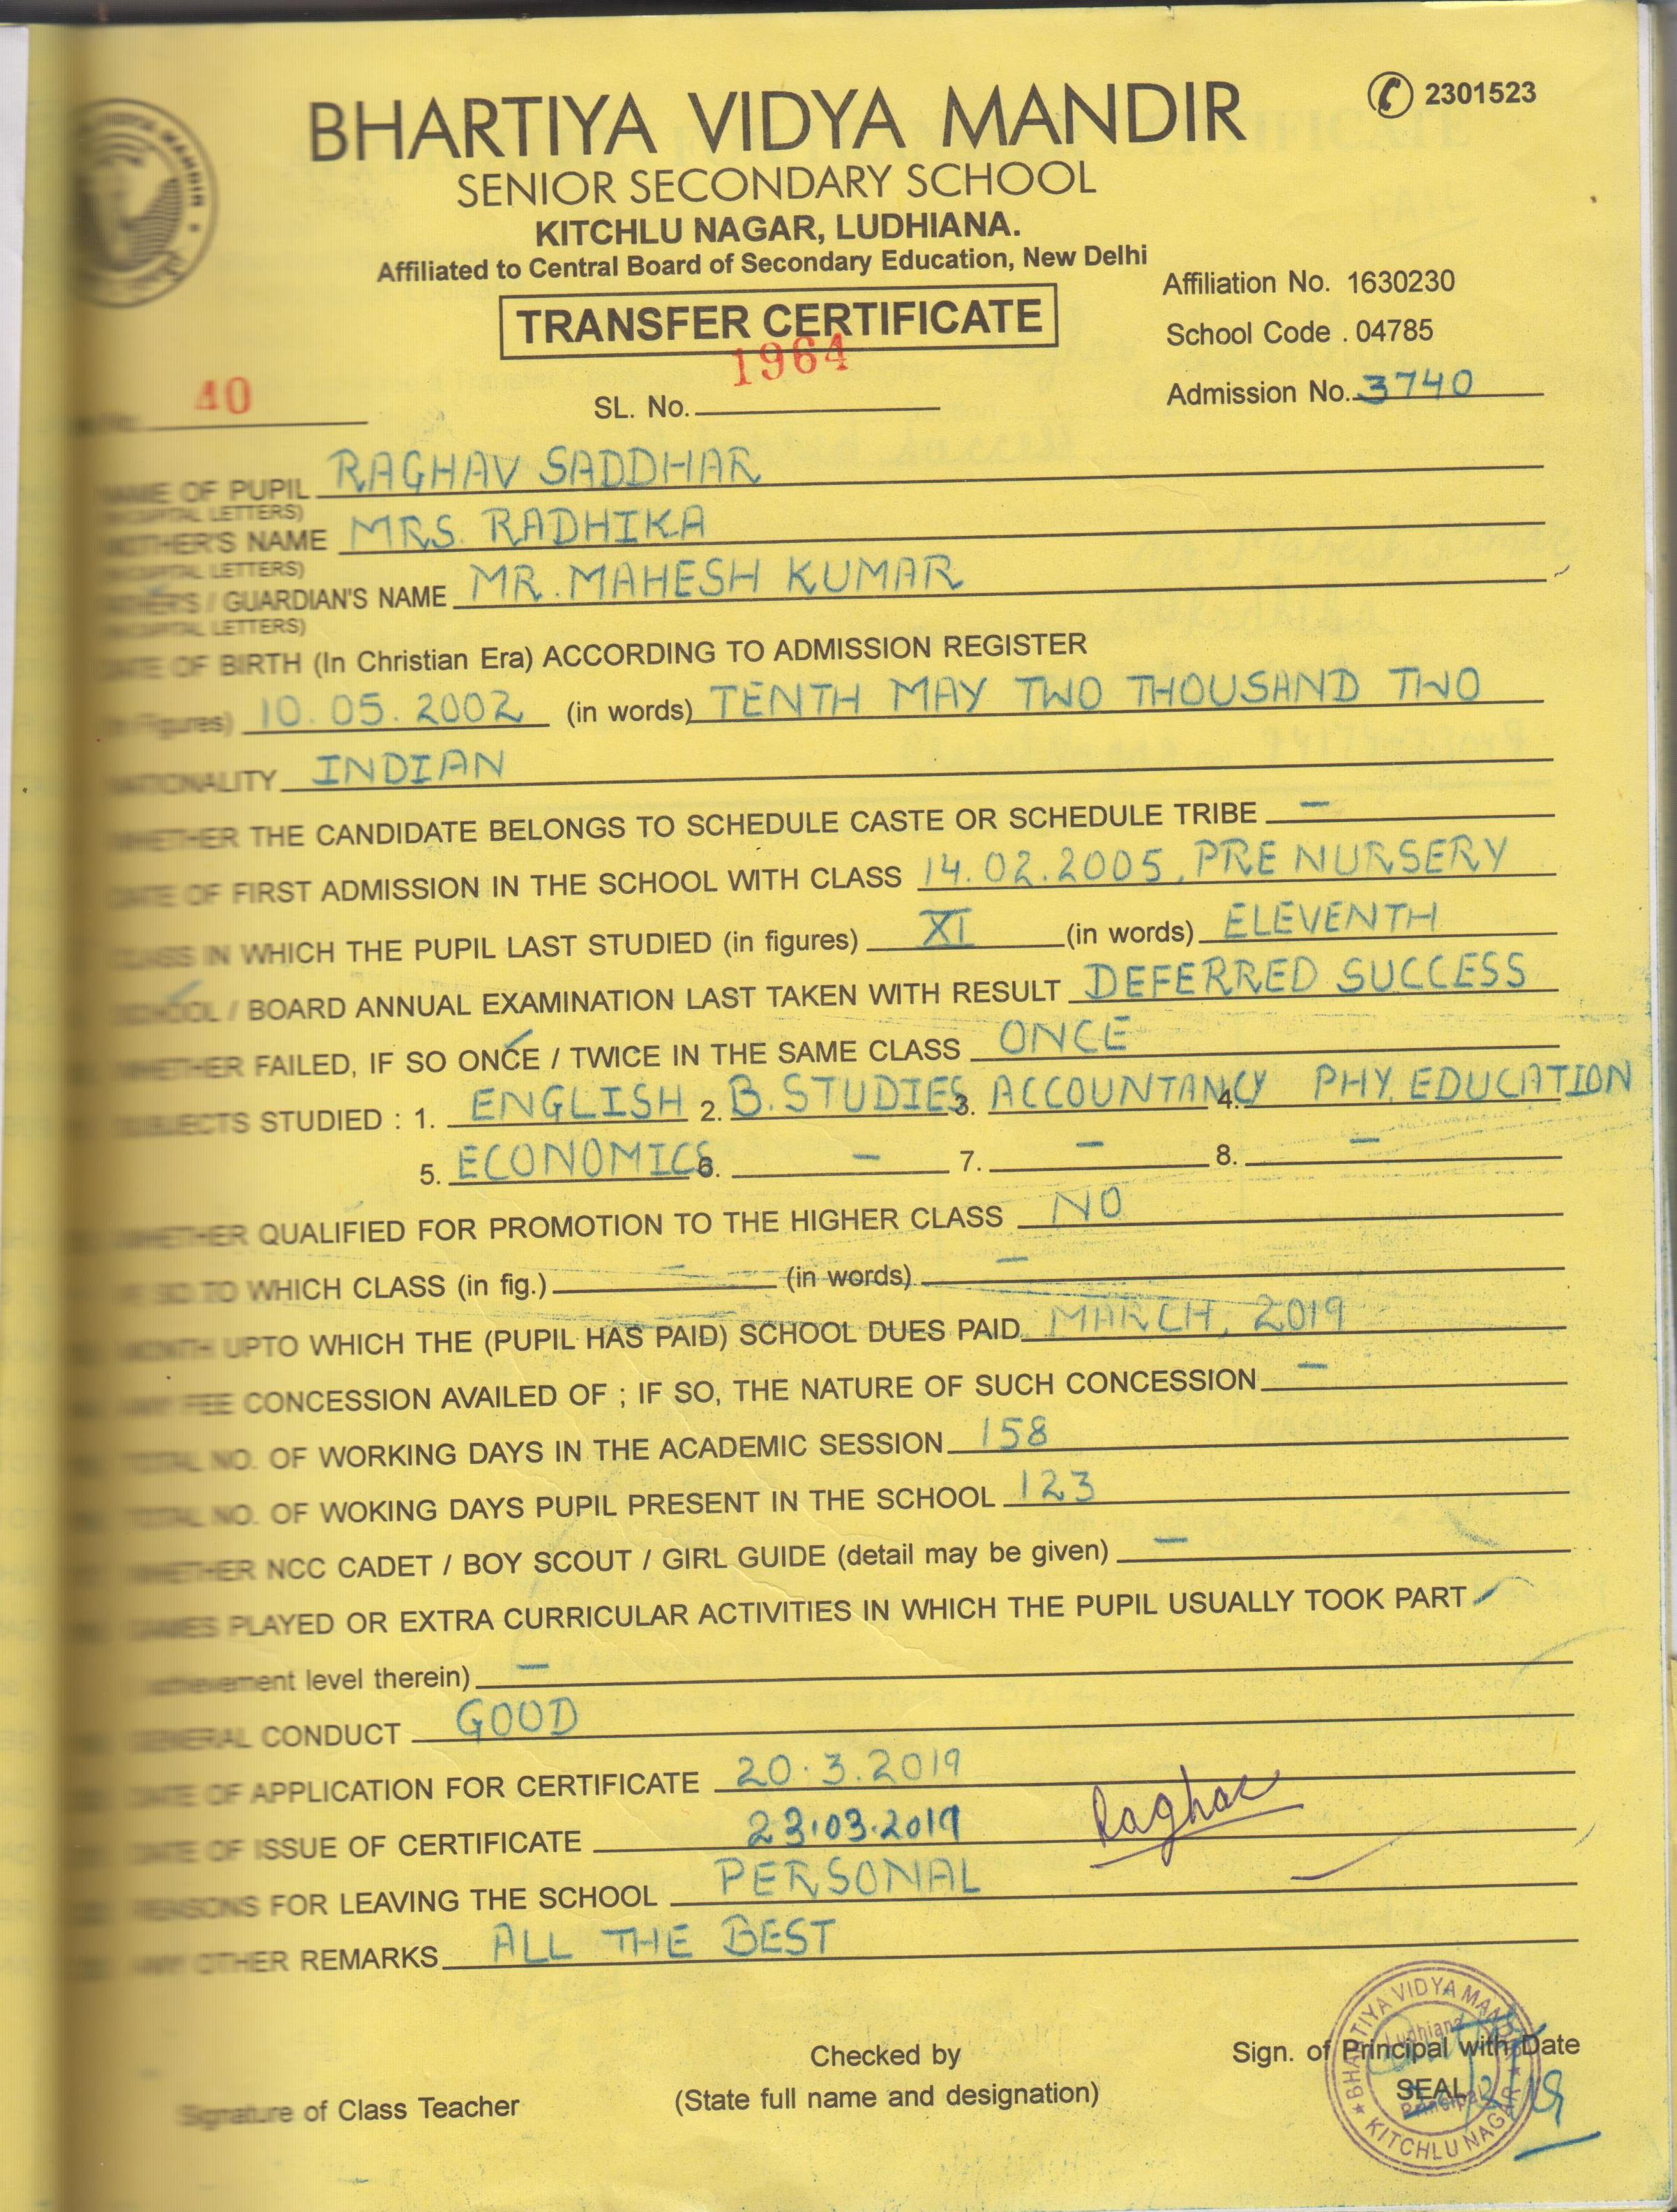 BHARTIYA VIDYA MANDIR
2301523
SENIOR SECONDARY SCHOOL
KITCHLU NAGAR, LUDHIANA.
Affiliated to Central Board of Secondary Education, New Delhi
Affiliation No. 1630230
TRANSFER CERTIFICATE
School Code . 04785
40 SL. No. 1964 Admission No. 3740
NAME OF PUPIL RAGHAV SADDHAR
(IN CAPITAL LETTERS)
MOTHER'S NAME MRS. RADHIKA
(IN CAPITAL LETTERS)
FATHER'S / GUARDIAN'S NAME MR. MAHESH KUMAR
(IN CAPITAL LETTERS)
DATE OF BIRTH (In Christian Era) ACCORDING TO ADMISSION REGISTER
(in Figures) 10.05.2002 (in words) TENTH MAY TWO THOUSAND TWO
NATIONALITY INDIAN
WHETHER THE CANDIDATE BELONGS TO SCHEDULE CASTE OR SCHEDULE TRIBE –
DATE OF FIRST ADMISSION IN THE SCHOOL WITH CLASS 14.02.2005, PRE NURSERY
CLASS IN WHICH THE PUPIL LAST STUDIED (in figures) XI (in words) ELEVENTH
SCHOOL / BOARD ANNUAL EXAMINATION LAST TAKEN WITH RESULT DEFERRED SUCCESS
WHETHER FAILED, IF SO ONCE / TWICE IN THE SAME CLASS ONCE
SUBJECTS STUDIED : 1. ENGLISH 2. B. STUDIES 3. ACCOUNTANCY 4. PHY. EDUCATION
5. ECONOMICS 6. – 7. – 8. –
WHETHER QUALIFIED FOR PROMOTION TO THE HIGHER CLASS NO
IF SO TO WHICH CLASS (in fig.) – (in words) –
MONTH UPTO WHICH THE (PUPIL HAS PAID) SCHOOL DUES PAID MARCH, 2019
ANY FEE CONCESSION AVAILED OF ; IF SO, THE NATURE OF SUCH CONCESSION –
TOTAL NO. OF WORKING DAYS IN THE ACADEMIC SESSION 158
TOTAL NO. OF WOKING DAYS PUPIL PRESENT IN THE SCHOOL 123
WHETHER NCC CADET / BOY SCOUT / GIRL GUIDE (detail may be given) –
GAMES PLAYED OR EXTRA CURRICULAR ACTIVITIES IN WHICH THE PUPIL USUALLY TOOK PART
achievement level therein) –
GENERAL CONDUCT GOOD
DATE OF APPLICATION FOR CERTIFICATE 20.3.2019
DATE OF ISSUE OF CERTIFICATE 23.03.2019 Raghav
REASONS FOR LEAVING THE SCHOOL PERSONAL
ANY OTHER REMARKS ALL THE BEST
Signature of Class Teacher
Checked by
(State full name and designation)
Sign. of Principal with Date
SEAL
BHARTIYA VIDYA MANDIR
Ludhiana
Principal
KITCHLU NAGAR